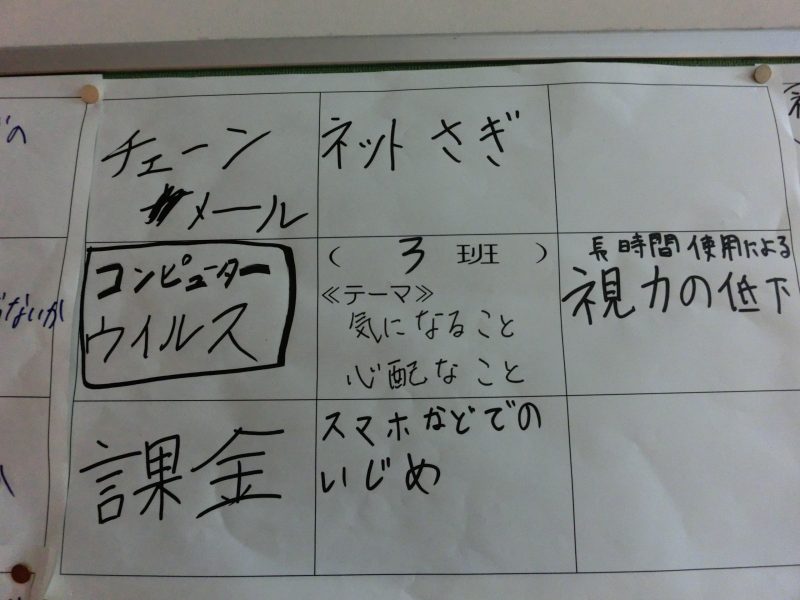 チェーン
メール
ネットさぎ
コンピューター
ウイルス
( 3 班 )
≪テーマ≫
気になること
心配なこと
長時間使用による
視力の低下
課金
スマホなどでの
いじめ
の
ないか